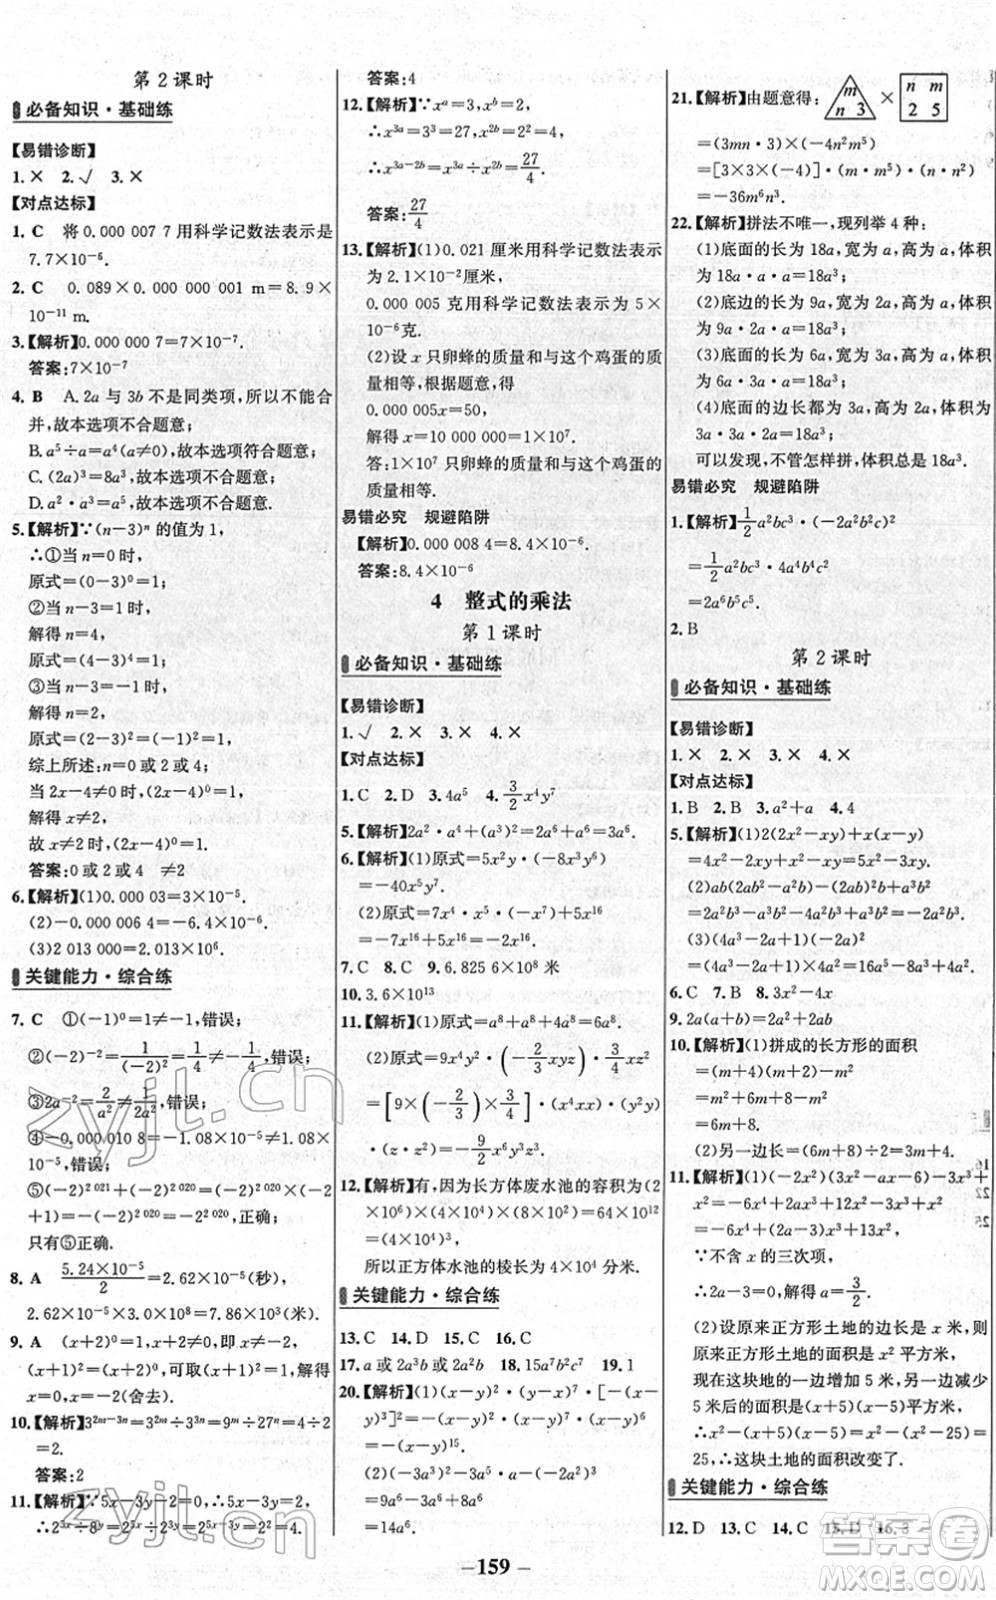 第2课时
必备知识·基础练
【易错诊断】
1.× 2.√ 3.×
【对点达标】
1. C 将0.000 007 7用科学记数法表示是
7.7×10⁻⁶.
2. C 0.089×0.000 000 001 m=8.9×
10⁻¹¹ m.
3.【解析】0.000 000 7=7×10⁻⁷.
答案:7×10⁻⁷
4. B A.2a与3b不是同类项,所以不能合
并,故本选项不合题意;
B.a⁵÷a=a⁴(a≠0),故本选项符合题意;
C.(2a)³=8a³,故本选项不合题意;
D.a²·a³=a⁵,故本选项不合题意.
5.【解析】∵(n-3)ⁿ的值为1,
∴①当n=0时,
原式=(0-3)⁰=1;
②当n-3=1时,
解得n=4,
原式=(4-3)⁴=1;
③当n-3=-1时,
解得n=2,
原式=(2-3)²=(-1)²=1,
综上所述:n=0或2或4;
当2x-4≠0时,(2x-4)⁰=1,
解得x≠2,
故x≠2时,(2x-4)⁰=1.
答案:0或2或4 ≠2
6.【解析】(1)0.000 03=3×10⁻⁵.
(2)-0.000 006 4=-6.4×10⁻⁶.
(3)2 013 000=2.013×10⁶.
关键能力·综合练
7. C ①(-1)⁰=1≠-1,错误;
②(-2)⁻²=1/(-2)²=1/4≠-1/4,错误;
③2a⁻²=2/a²≠1/2a²,错误;
④-0.000 010 8=-1.08×10⁻⁵≠1.08×
10⁻⁵,错误;
⑤(-2)²⁰²¹+(-2)²⁰²⁰=(-2)²⁰²⁰×(-2
+1)=-(-2)²⁰²⁰=-2²⁰²⁰,正确;
只有⑤正确.
8. A 5.24×10⁻⁵/2=2.62×10⁻⁵(秒),
2.62×10⁻⁵×3.0×10⁸=7.86×10³(米).
9. A (x+2)⁰=1,x+2≠0,即x≠-2,
(x+1)²=1=(x+2)⁰,可取(x+1)²=1,解得
x=0,x=-2(舍去).
10.【解析】3²ᵐ⁻³ⁿ=3²ᵐ÷3³ⁿ=9ᵐ÷27ⁿ=4÷2
=2.
答案:2
11.【解析】∵5x-3y-2=0,∴5x-3y=2,
∴2⁵ˣ÷8ʸ=2⁵ˣ÷2³ʸ=2⁵ˣ⁻³ʸ=2²=4.
答案:4
12.【解析】∵xᵃ=3,xᵇ=2,
∴x³ᵃ=3³=27,x²ᵇ=2²=4,
∴x³ᵃ⁻²ᵇ=x³ᵃ÷x²ᵇ=27/4.
答案:27/4
13.【解析】(1)0.021厘米用科学记数法表示
为2.1×10⁻²厘米,
0.000 005克用科学记数法表示为5×
10⁻⁶克.
(2)设x只卵蜂的质量和与这个鸡蛋的质
量相等,根据题意,得
0.000 005x=50,
解得x=10 000 000=1×10⁷.
答:1×10⁷只卵蜂的质量和与这个鸡蛋的
质量相等.
易错必究 规避陷阱
【解析】0.000 008 4=8.4×10⁻⁶.
答案:8.4×10⁻⁶
4 整式的乘法
第1课时
必备知识·基础练
【易错诊断】
1.√ 2.× 3.× 4.×
【对点达标】
1. C 2. D 3. 4a⁵ 4. 3/2x⁴y⁷
5.【解析】2a²·a⁴+(a³)²=2a⁶+a⁶=3a⁶.
6.【解析】(1)原式=5x²y·(-8x³y⁶)
=-40x⁵y⁷.
(2)原式=7x⁴·x⁵·(-x⁷)+5x¹⁶
=-7x¹⁶+5x¹⁶=-2x¹⁶.
7. C 8. C 9. 6.825 6×10⁸米
10. 3.6×10¹³
11.【解析】(1)原式=a⁸+a⁸+4a⁸=6a⁸.
(2)原式=9x⁴y²·(-2/3xyz)·3/4xz²
=[9×(-2/3)×3/4]·(x⁴xx)·(y²y)
·(zz²)=-9/2x⁶y³z³.
12.【解析】有,因为长方体废水池的容积为(2
×10⁶)×(4×10⁵)×(8×10²)=64×10¹²
=(4×10⁴)³,
所以正方体水池的棱长为4×10⁴分米.
关键能力·综合练
13. C 14. D 15. C 16. C
17. a或2a³b或2a²b 18. 15a⁷b²c⁷ 19. 1
20.【解析】(1)(x-y)·(x-y)²·[-(x-
y)³]²·[-(x-y)²]³
=-(x-y)¹⁵.
(2)(-3a³)²-a·a⁵+(-4a²)·(-a²)²·a⁰
=14a⁶.
21.【解析】由题意得: m n 3 × n m 2 5
=(3mn·3)×(-4n²m⁵)
=[3×3×(-4)]·(m·m⁵)·(n·n²)
=-36m⁶n³.
22.【解析】拼法不唯一,现列举4种:
(1)底面的长为18a,宽为a,高为a,体积
为18a·a·a=18a³;
(2)底边的长为9a,宽为2a,高为a,体积
为9a·2a·a=18a³;
(3)底面的长为6a,宽为3a,高为a,体积
为6a·3a·a=18a³;
(4)底面的边长都为3a,高为2a,体积为
3a·3a·2a=18a³.
可以发现,不管怎样拼,体积总是18a³.
易错必究 规避陷阱
1.【解析】1/2a²bc³·(-2a²b²c)²
=1/2a²bc³·4a⁴b⁴c²
=2a⁶b⁵c⁵.
2. B
第2课时
必备知识·基础练
【易错诊断】
1.× 2.× 3.√ 4.×
【对点达标】
1. B 2. B 3. a²+a 4. 4
5.【解析】(1)2(2x²-xy)+x(x-y)
=4x²-2xy+x²-xy=5x²-3xy.
(2)ab(2ab²-a²b)-(2ab)²b+a³b²
=2a²b³-a³b²-4a²b³+a³b²=-2a²b³.
(3)(4a³-2a+1)(-2a)²
=(4a³-2a+1)·4a²=16a⁵-8a³+4a².
6. C 7. B 8. 3x²-4x
9. 2a(a+b)=2a²+2ab
10.【解析】(1)拼成的长方形的面积
=(m+4)(m+4)-m²
=m²+8m+16-m²
=8m+16.
11.【解析】(1)(-2x²)(3x²-ax-6)-3x³+
x²=-6x⁴+2ax³+12x²-3x³+x²
=-6x⁴+(2a-3)x³+13x²,
∵不含x的三次项,
∴2a-3=0,解得a=3/2.
(2)设原来正方形土地的边长是x米,则
原来正方形土地的面积是x²平方米,
现在这块地的一边增加5米,另一边减少
5米后的面积是(x+5)(x-5)平方米.
∴x²+5x-5x-25=x²-
25,∴这块土地的面积改变了.
关键能力·综合练
12. D 13. C 14. C 15. D 16. 3
- 159 -
zyjl.cn
zyjl.cn
答案圈
MXQE.COM